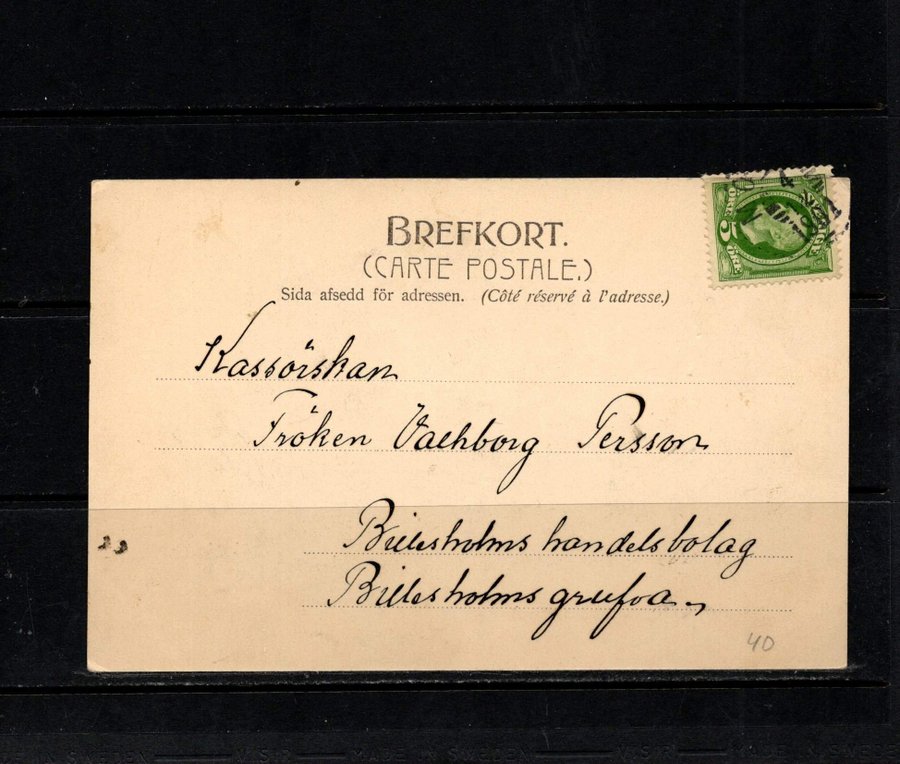 BREFKORT.
(CARTE POSTALE.)
Sida afsedd för adressen. (Côté réservé à l'adresse.)
Kassörskan
Fröken Valhborg Persson
Billesholms handelsbolag
Billesholms grufva
40
5
ÖRE
MADE IN SWEDEN